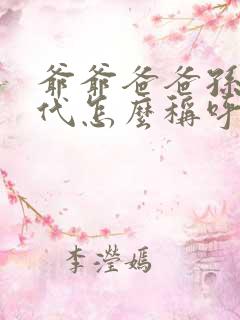 爺爺爸爸孫
代怎麼稱呼
李瀅嫣